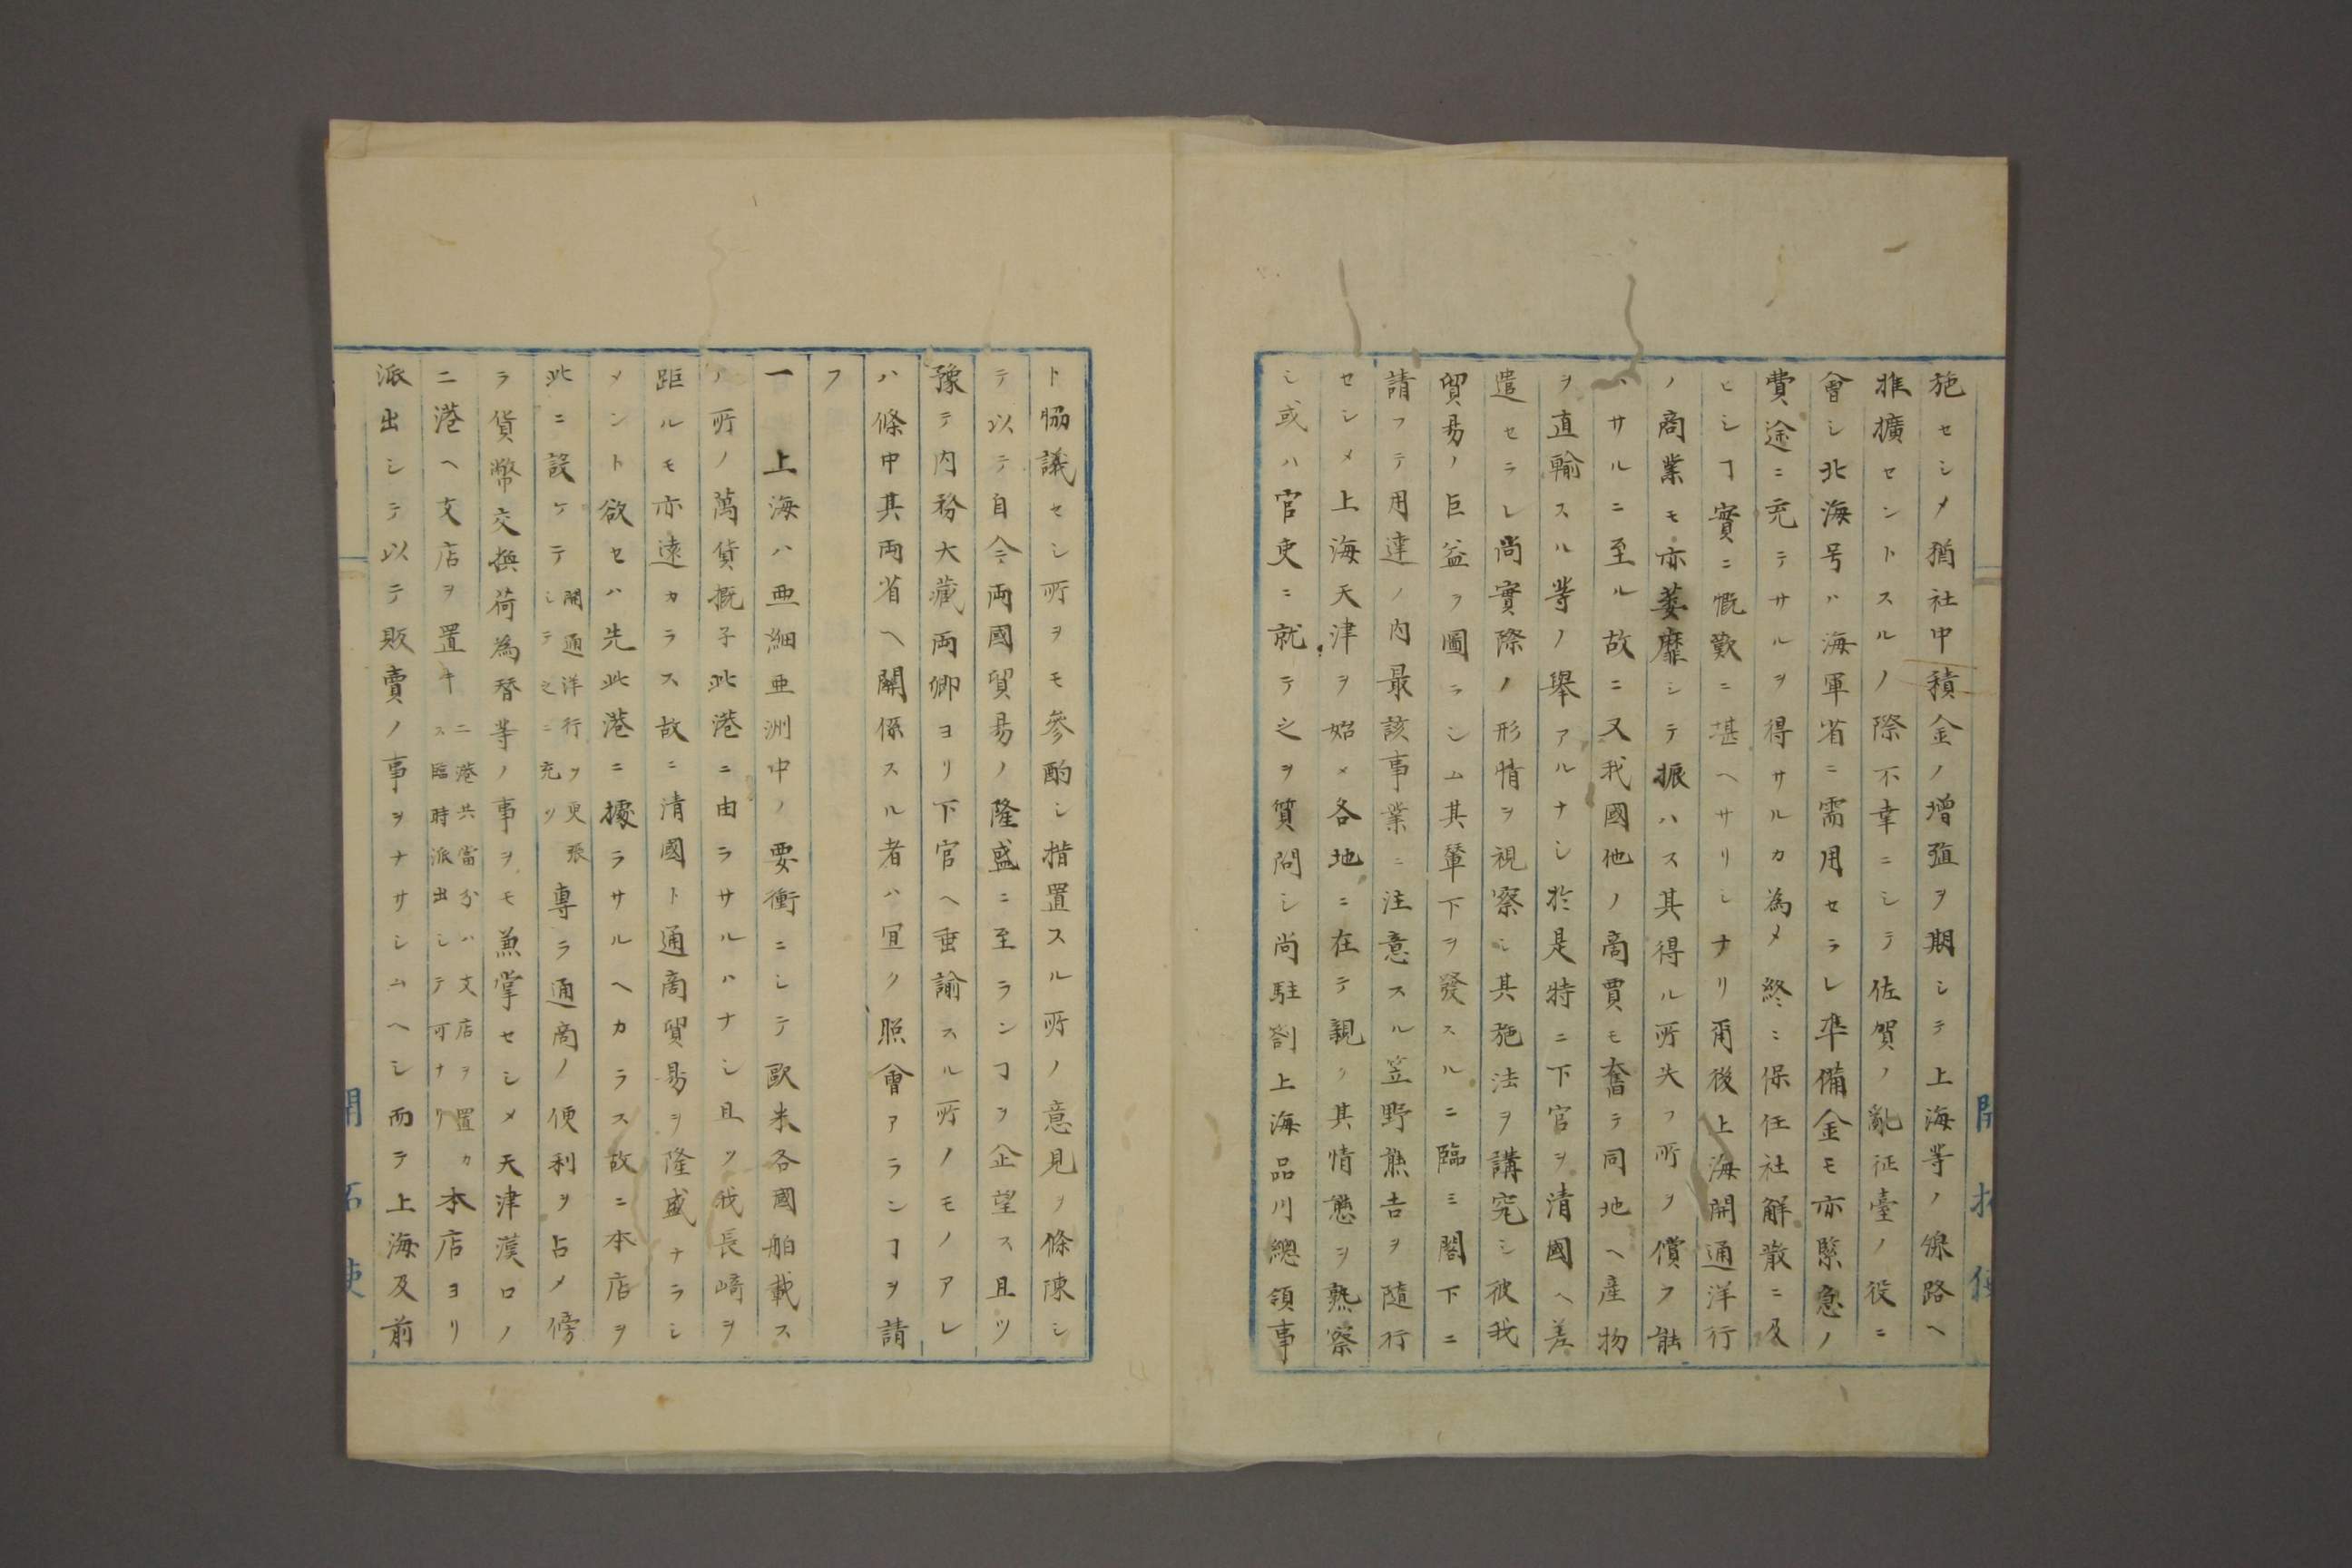 施セシメ猶社中積金ノ增殖ヲ期シテ上海等ノ線路ヘ
推擴セントスルノ際不幸ニシテ佐賀ノ亂征臺ノ役ニ
會シ北海号ハ海軍省ニ需用セラレ凖備金モ亦緊急ノ
費途ニ充テサルヲ得サルカ為メ終ニ保任社解散ニ及
ヒシヿ實ニ慨歎ニ堪ヘサリシナリ甭後上海開通洋行
ノ商業モ亦萎靡シテ振ハス其得ル所失フ所ヲ償フ能
ハサルニ至ル故ニ又我國他ノ商賈モ奮テ同地ヘ産物
ヲ直輸スル等ノ舉アルナシ於是特ニ下官ヲ清國ヘ差
遣セラレ尚實際ノ形情ヲ視察シ其施法ヲ講究シ彼我
貿易ノ巨益ヲ圖ラシム其輦下ヲ發スルニ臨ミ閣下ニ
請フテ用達ノ内最該事業ニ注意スル笠野熊吉ヲ隨行
セシメ上海天津ヲ始メ各地ニ在テ親ク其情態ヲ熟察
シ或ハ官吏ニ就テ之ヲ質問シ尚駐劄上海品川總領事
ト協議セシ所ヲモ參酌シ措置スル所ノ意見ヲ條陳シ
テ以テ自今両國貿易ノ隆盛ニ至ランヿヲ企望ス且ツ
豫テ内務大藏両卿ヨリ下官ヘ垂諭スル所ノモノアレ
ハ條中其両省ヘ關係スル者ハ宜ク照會アランヿヲ請
フ
一 上海ハ亜細亜洲中ノ要衝ニシテ歐米各國舶載ス
ノ所ノ萬貨概子此港ニ由ラサルハナシ且ツ我長﨑ヲ
距ルモ亦遠カラス故ニ清國ト通商貿易ヲ隆盛ナラシ
メント欲セハ先此港ニ據ラサルヘカラス故ニ本店ヲ
此ニ設ケテ開通洋行ヲ更張シテ之ニ充ツ專ラ通商ノ便利ヲ占メ傍
ラ貨幣交換荷為替等ノ事ヲモ兼掌セシメ天津漢口ノ
二港ヘ支店ヲ置キ二港共當分ハ支店ヲ置カス臨時派出シテ可ナリ本店ヨリ
派出シテ以テ販賣ノ事ヲナサシムヘシ而テ上海及前
開拓使
開拓使